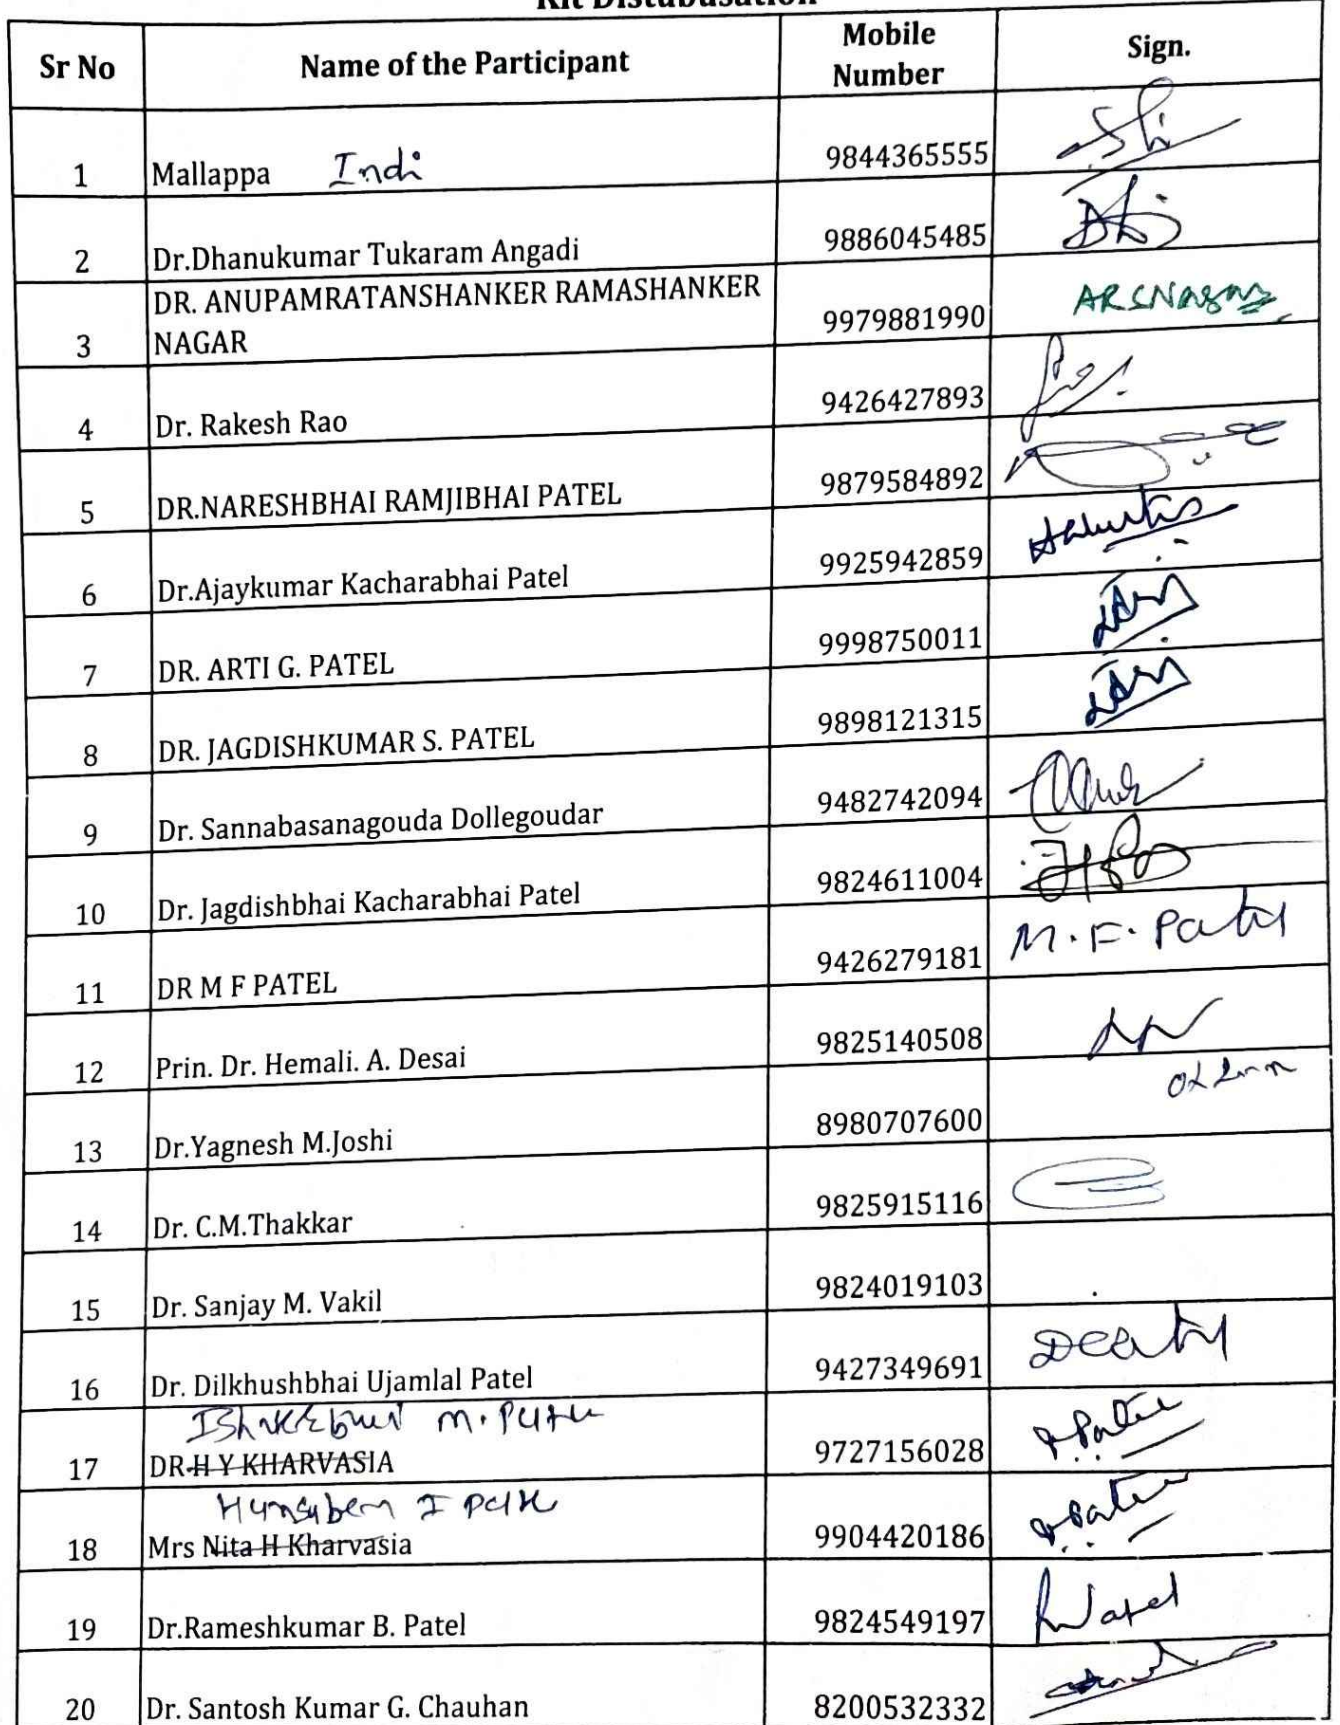 Kit Distubusation
Sr No Name of the Participant Mobile Number Sign.
1 Mallappa Indi 9844365555
2 Dr.Dhanukumar Tukaram Angadi 9886045485
3 DR. ANUPAMRATANSHANKER RAMASHANKER
NAGAR 9979881990 ARSNagar
4 Dr. Rakesh Rao 9426427893
5 DR.NARESHBHAI RAMJIBHAI PATEL 9879584892
6 Dr.Ajaykumar Kacharabhai Patel 9925942859
7 DR. ARTI G. PATEL 9998750011
8 DR. JAGDISHKUMAR S. PATEL 9898121315
9 Dr. Sannabasanagouda Dollegoudar 9482742094
10 Dr. Jagdishbhai Kacharabhai Patel 9824611004
11 DR M F PATEL 9426279181 M.F. Patel
12 Prin. Dr. Hemali. A. Desai 9825140508
13 Dr.Yagnesh M.Joshi 8980707600
14 Dr. C.M.Thakkar 9825915116
15 Dr. Sanjay M. Vakil 9824019103
16 Dr. Dilkhushbhai Ujamlal Patel 9427349691
M. Patel
17 DR H Y KHARVASIA 9727156028
Hansaben I Patel
18 Mrs Nita H Kharvasia 9904420186
19 Dr.Rameshkumar B. Patel 9824549197
20 Dr. Santosh Kumar G. Chauhan 8200532332